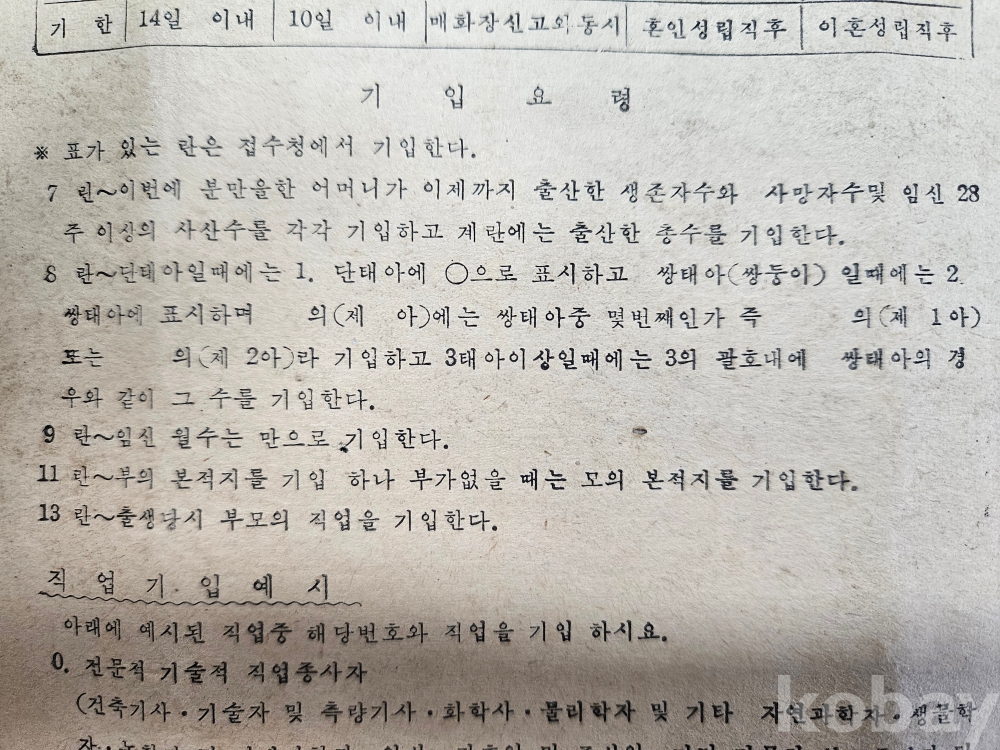 기 한 14일 이내 10일 이내 매화장신고의 동시 혼인성립직후 이혼성립직후
기 입 요 령
※ 표가 있는 란은 접수청에서 기입한다.
7 란~이번에 분만을한 어머니가 이제까지 출산한 생존자수와 사망자수및 임신 28
주 이상의 사산수를 각각 기입하고 계란에는 출산한 총수를 기입한다.
8 란~단태아일때에는 1. 단태아에 ○으로 표시하고 쌍태아(쌍둥아) 일때에는 2.
쌍태아에 표시하며 의(제 아)에는 쌍태아중 몇번째인가 즉 의(제 1아)
또는 의(제 2아)라 기입하고 3태아이상일때에는 3의 괄호내에 쌍태아의 경
우와 같이 그 수를 기입한다.
9 란~임신 월수는 만으로 기입한다.
11 란~부의 본적지를 기입 하나 부가없을 때는 모의 본적지를 기입한다.
13 란~출생당시 부모의 직업을 기입한다.
직 업 기 입 예 시
아래에 예시된 직업중 해당번호와 직업을 기입 하시요.
0. 전문적 기술적 직업종사자
(건축기사·기술자 및 측량기사·화학사·물리학자 및 기타 자연과학자·생물학
kobay